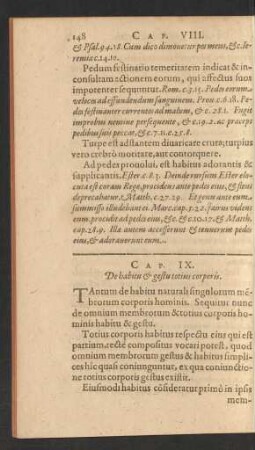 148 CAP. VIII.
& Psal. 94. 18. Cum dico dimouetur pes meus, &c. Ie-
remiæ c. 14. 10.
Pedum festinatio temeritatem indicat & in-
consultam actionem eorum, qui affectus suos
impotenter sequuntur. Rom. c. 3. 15. Pedes eorum
veloces ad effundendum sanguinem. Prou. c. 6. 18. Pe-
des festinanter currentes ad malum, & c. 28. 1. Fugit
improbus nemine persequente, & c. 19. 2. ac præceps
pedibus suis peccat. & c. 7. 11. c. 25. 8.
Turpe est adstantem diuaricare crura; turpius
vero crebrò mouitare, aut contorquere.
Ad pedes prouolui, est habitus adorantis &
supplicantis. Ester c. 8. 3. Deinde rursum Ester elo-
cuta est coram Rege, procidens ante pedes eius, & flens
deprecabatur, &c. Matth. c. 27. 29. Et genu ante eum
summisso illudebant ei. Marc. cap. 5. 22. Iairus videns
eum procidit ad pedes eius, &c. & c. 10. 17. & Matth.
cap. 28. 9. Illæ autem accesserunt & tenuerunt pedes
eius, & adorauerunt eum...
CAP. IX.
De habitu & gestu totius corporis.
TAntum de habitu naturali singulorum mē-
brorum corporis hominis. Sequitur nunc
de omnium membrorum & totius corporis ho-
minis habitu & gestu.
Totius corporis habitus respectu eius qui est
partium, rectè compositus vocari potest, quod
omnium membrorum gestus & habitus simpli-
ces hic quasi coniunguntur, ex qua coniunctio-
ne totius corporis gestus existit.
Eiusmodi habitus cōsideratur primò in ipsis
mem-